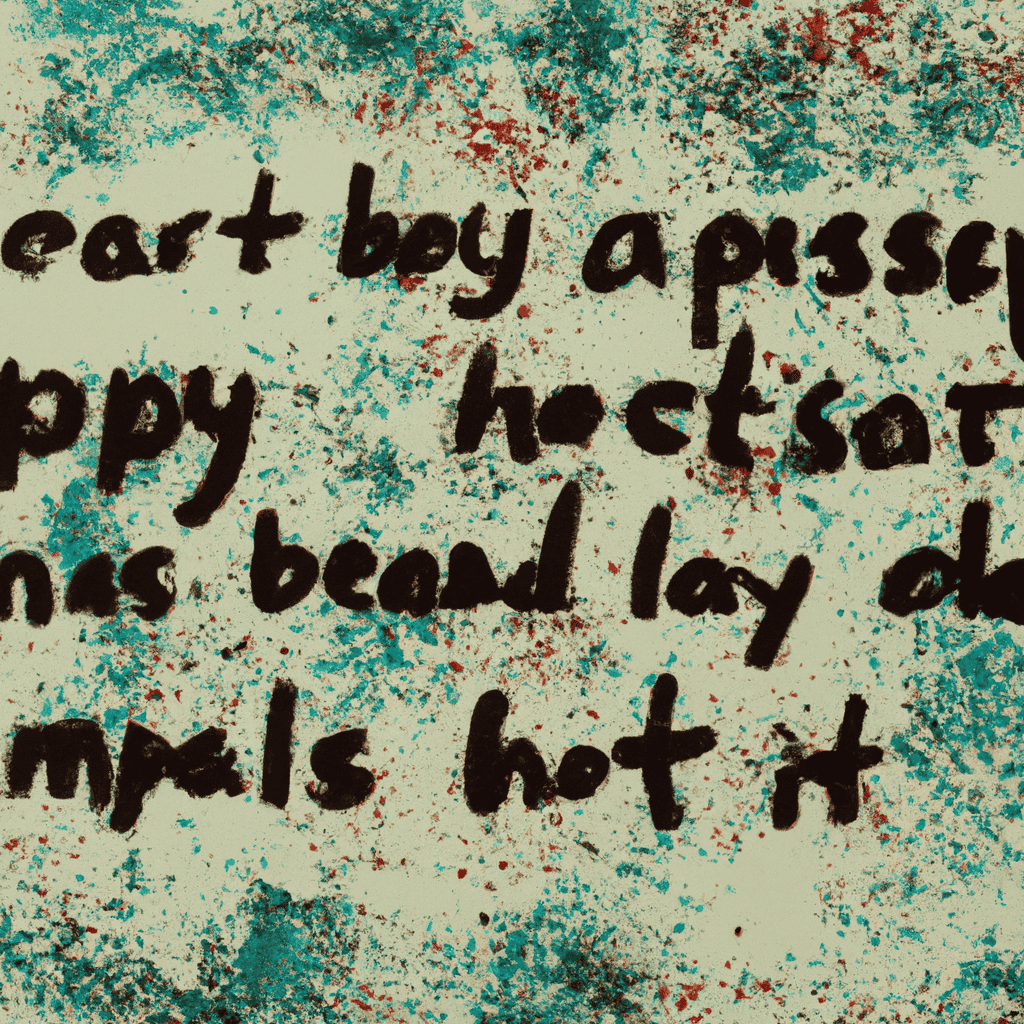 eart boy apisscy
ppy hoctsat
nas beand lay do
mpals hot it